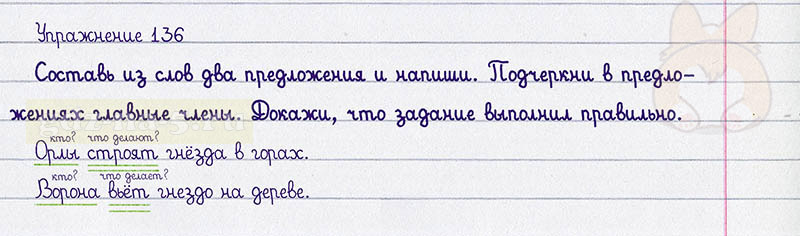 Упражнение 136
Составь из слов два предложения и напиши. Подчеркни в предло-
жениях главные члены. Докажи, что задание выполнил правильно.
кто? что делают?
Орлы строят гнёзда в горах.
кто? что делает?
Ворона вьёт гнездо на дереве.